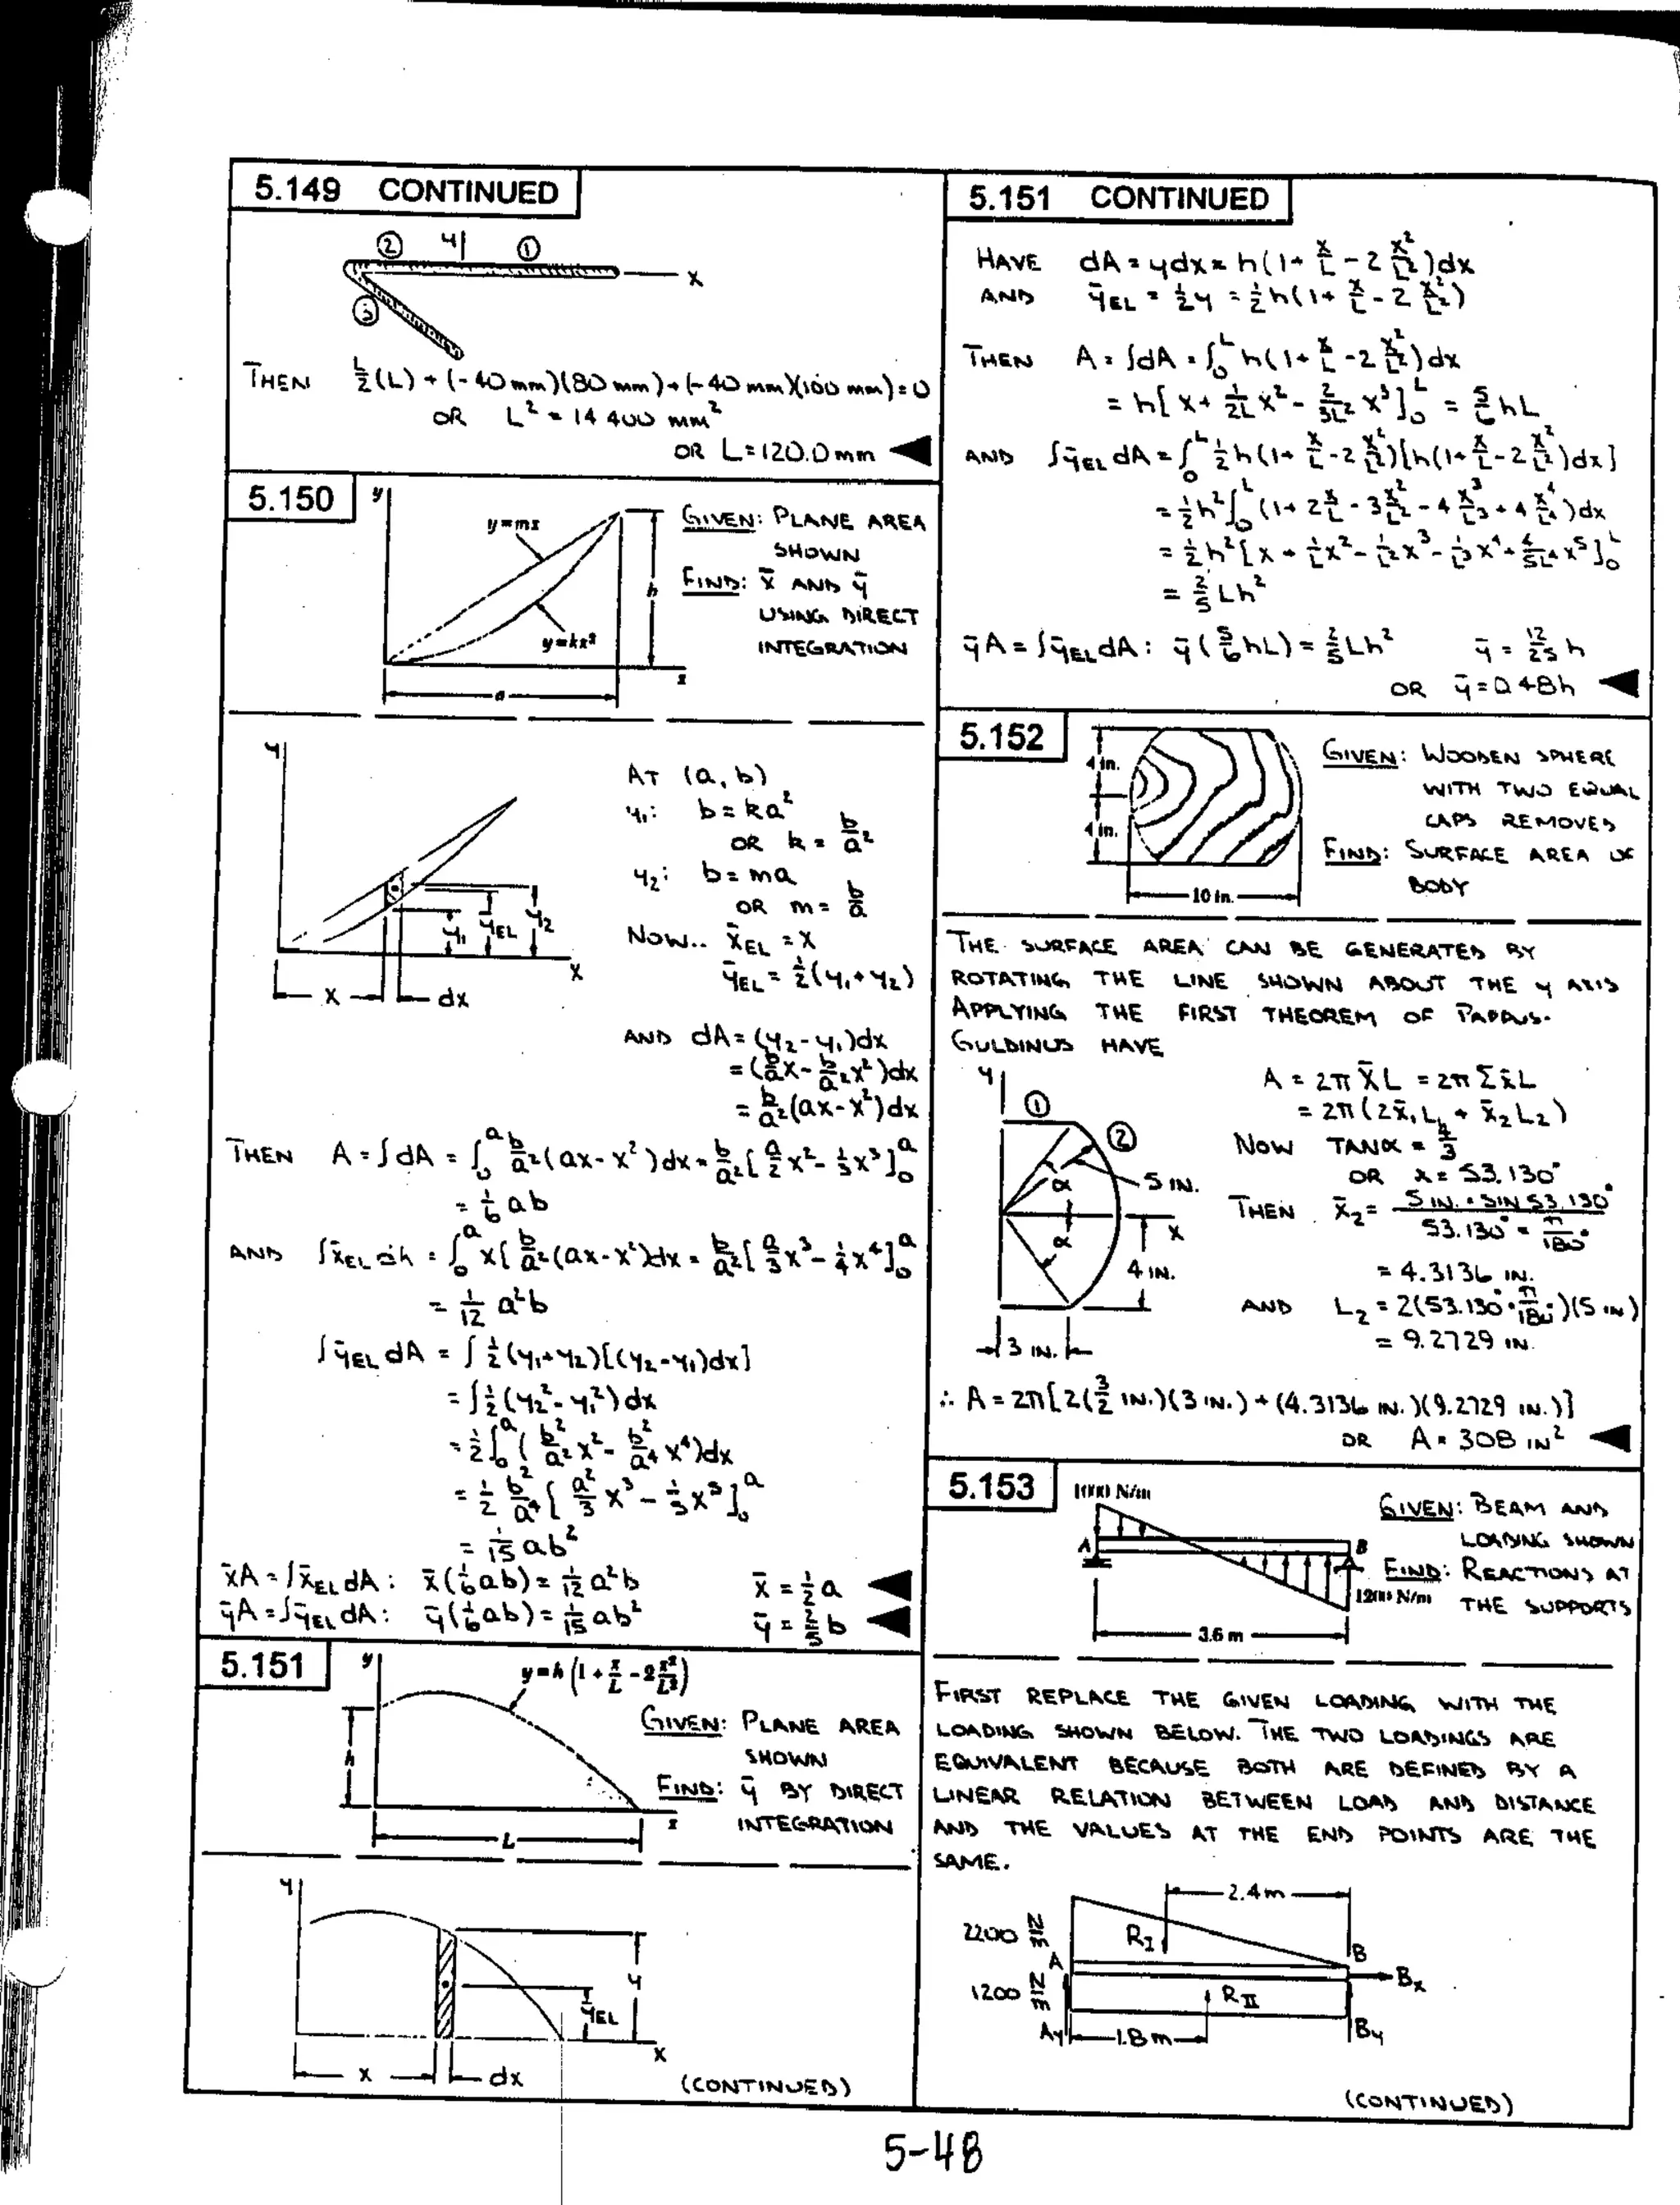 5.149 CONTINUED
② y ①
x
③
THEN L/2 (L) + (-40 mm)(80 mm) + (-40 mm)(100 mm) = 0
OR L² = 14 400 mm²
OR L = 120.0 mm
5.150
y
y=mx
GIVEN: PLANE AREA
SHOWN
h
FIND: x̄ AND ȳ
USING DIRECT
y=kx²
INTEGRATION
x
a
y
AT (a, b)
y₁: b = ka²
OR k = b/a²
y₂: b = ma
OR m = b/a
y₁ ȳEL y₂
NOW.. x̄EL = x
x
ȳEL = ½(y₁+y₂)
x dx
AND dA = (y₂-y₁)dx
= (b/a x - b/a² x²)dx
= b/a² (ax-x²)dx
THEN A = ∫dA = ∫₀ᵃ b/a² (ax-x²)dx = b/a² [a/2 x² - 1/3 x³]₀ᵃ
= 1/6 ab
AND ∫x̄EL dA = ∫₀ᵃ x[b/a² (ax-x²)dx = b/a² [a/3 x³ - 1/4 x⁴]₀ᵃ
= 1/12 a²b
∫ȳEL dA = ∫½(y₁+y₂)[(y₂-y₁)dx]
= ∫½(y₂²-y₁²)dx
= ½∫₀ᵃ (b²/a² x² - b²/a⁴ x⁴)dx
= ½ b²/a⁴ [a²/3 x³ - 1/5 x⁵]₀ᵃ
= 1/15 ab²
x̄A = ∫x̄EL dA: x̄(1/6 ab) = 1/12 a²b x̄ = ½a
ȳA = ∫ȳEL dA: ȳ(1/6 ab) = 1/15 ab² ȳ = 2/5 b
5.151
y
y=h(1+x/L-2x²/L²)
GIVEN: PLANE AREA
SHOWN
h
FIND: ȳ BY DIRECT
INTEGRATION
x
L
y
y
ȳEL
x
x dx
(CONTINUED)
5.151 CONTINUED
HAVE dA = ydx = h(1+x/L-2x²/L²)dx
AND ȳEL = ½y = ½h(1+x/L-2x²/L²)
THEN A = ∫dA = ∫₀ᴸ h(1+x/L-2x²/L²)dx
= h[x+1/2L x²-2/3L² x³]₀ᴸ = 5/6 hL
AND ∫ȳEL dA = ∫₀ᴸ ½h(1+x/L-2x²/L²)[h(1+x/L-2x²/L²)dx]
= ½h²∫₀ᴸ (1+2x/L-3x²/L²-4x³/L³+4x⁴/L⁴)dx
= ½h²[x+1/L x²-1/L² x³-1/L³ x⁴+4/5L⁴ x⁵]₀ᴸ
= 2/5 Lh²
ȳA = ∫ȳEL dA: ȳ(5/6 hL) = 2/5 Lh² ȳ = 12/25 h
OR ȳ = 0.48h
5.152
4 in.
4 in.
10 in.
GIVEN: WOODEN SPHERE
WITH TWO EQUAL
CAPS REMOVED
FIND: SURFACE AREA OF
BODY
THE SURFACE AREA CAN BE GENERATED BY
ROTATING THE LINE SHOWN ABOUT THE y AXIS
APPLYING THE FIRST THEOREM OF PAPPUS-
GULDINUS HAVE
y
A = 2π X̄L = 2π Σx̄L
①
= 2π(2x̄₁L₁ + x̄₂L₂)
②
NOW TANα = 4/3
α 5 IN.
OR α = 53.130°
x
THEN x̄₂ = 5 IN. · SIN 53.130° / 53.130° · π/180°
α
4 IN.
= 4.3136 IN.
AND L₂ = 2(53.130° · π/180°)(5 IN)
3 IN.
= 9.2729 IN.
∴ A = 2π[2(3/2 IN.)(3 IN.) + (4.3136 IN.)(9.2729 IN.)]
OR A = 308 IN²
5.153
1000 N/m
A
B
1200 N/m
3.6 m
GIVEN: BEAM AND
LOADING SHOWN
FIND: REACTIONS AT
THE SUPPORTS
FIRST REPLACE THE GIVEN LOADING WITH THE
LOADING SHOWN BELOW. THE TWO LOADINGS ARE
EQUIVALENT BECAUSE BOTH ARE DEFINED BY A
LINEAR RELATION BETWEEN LOAD AND DISTANCE
AND THE VALUES AT THE END POINTS ARE THE
SAME.
2.4 m
2200 N/m
R_I
A B
Bx
1200 N/m
R_II
Ay 1.8 m By
(CONTINUED)
5-48